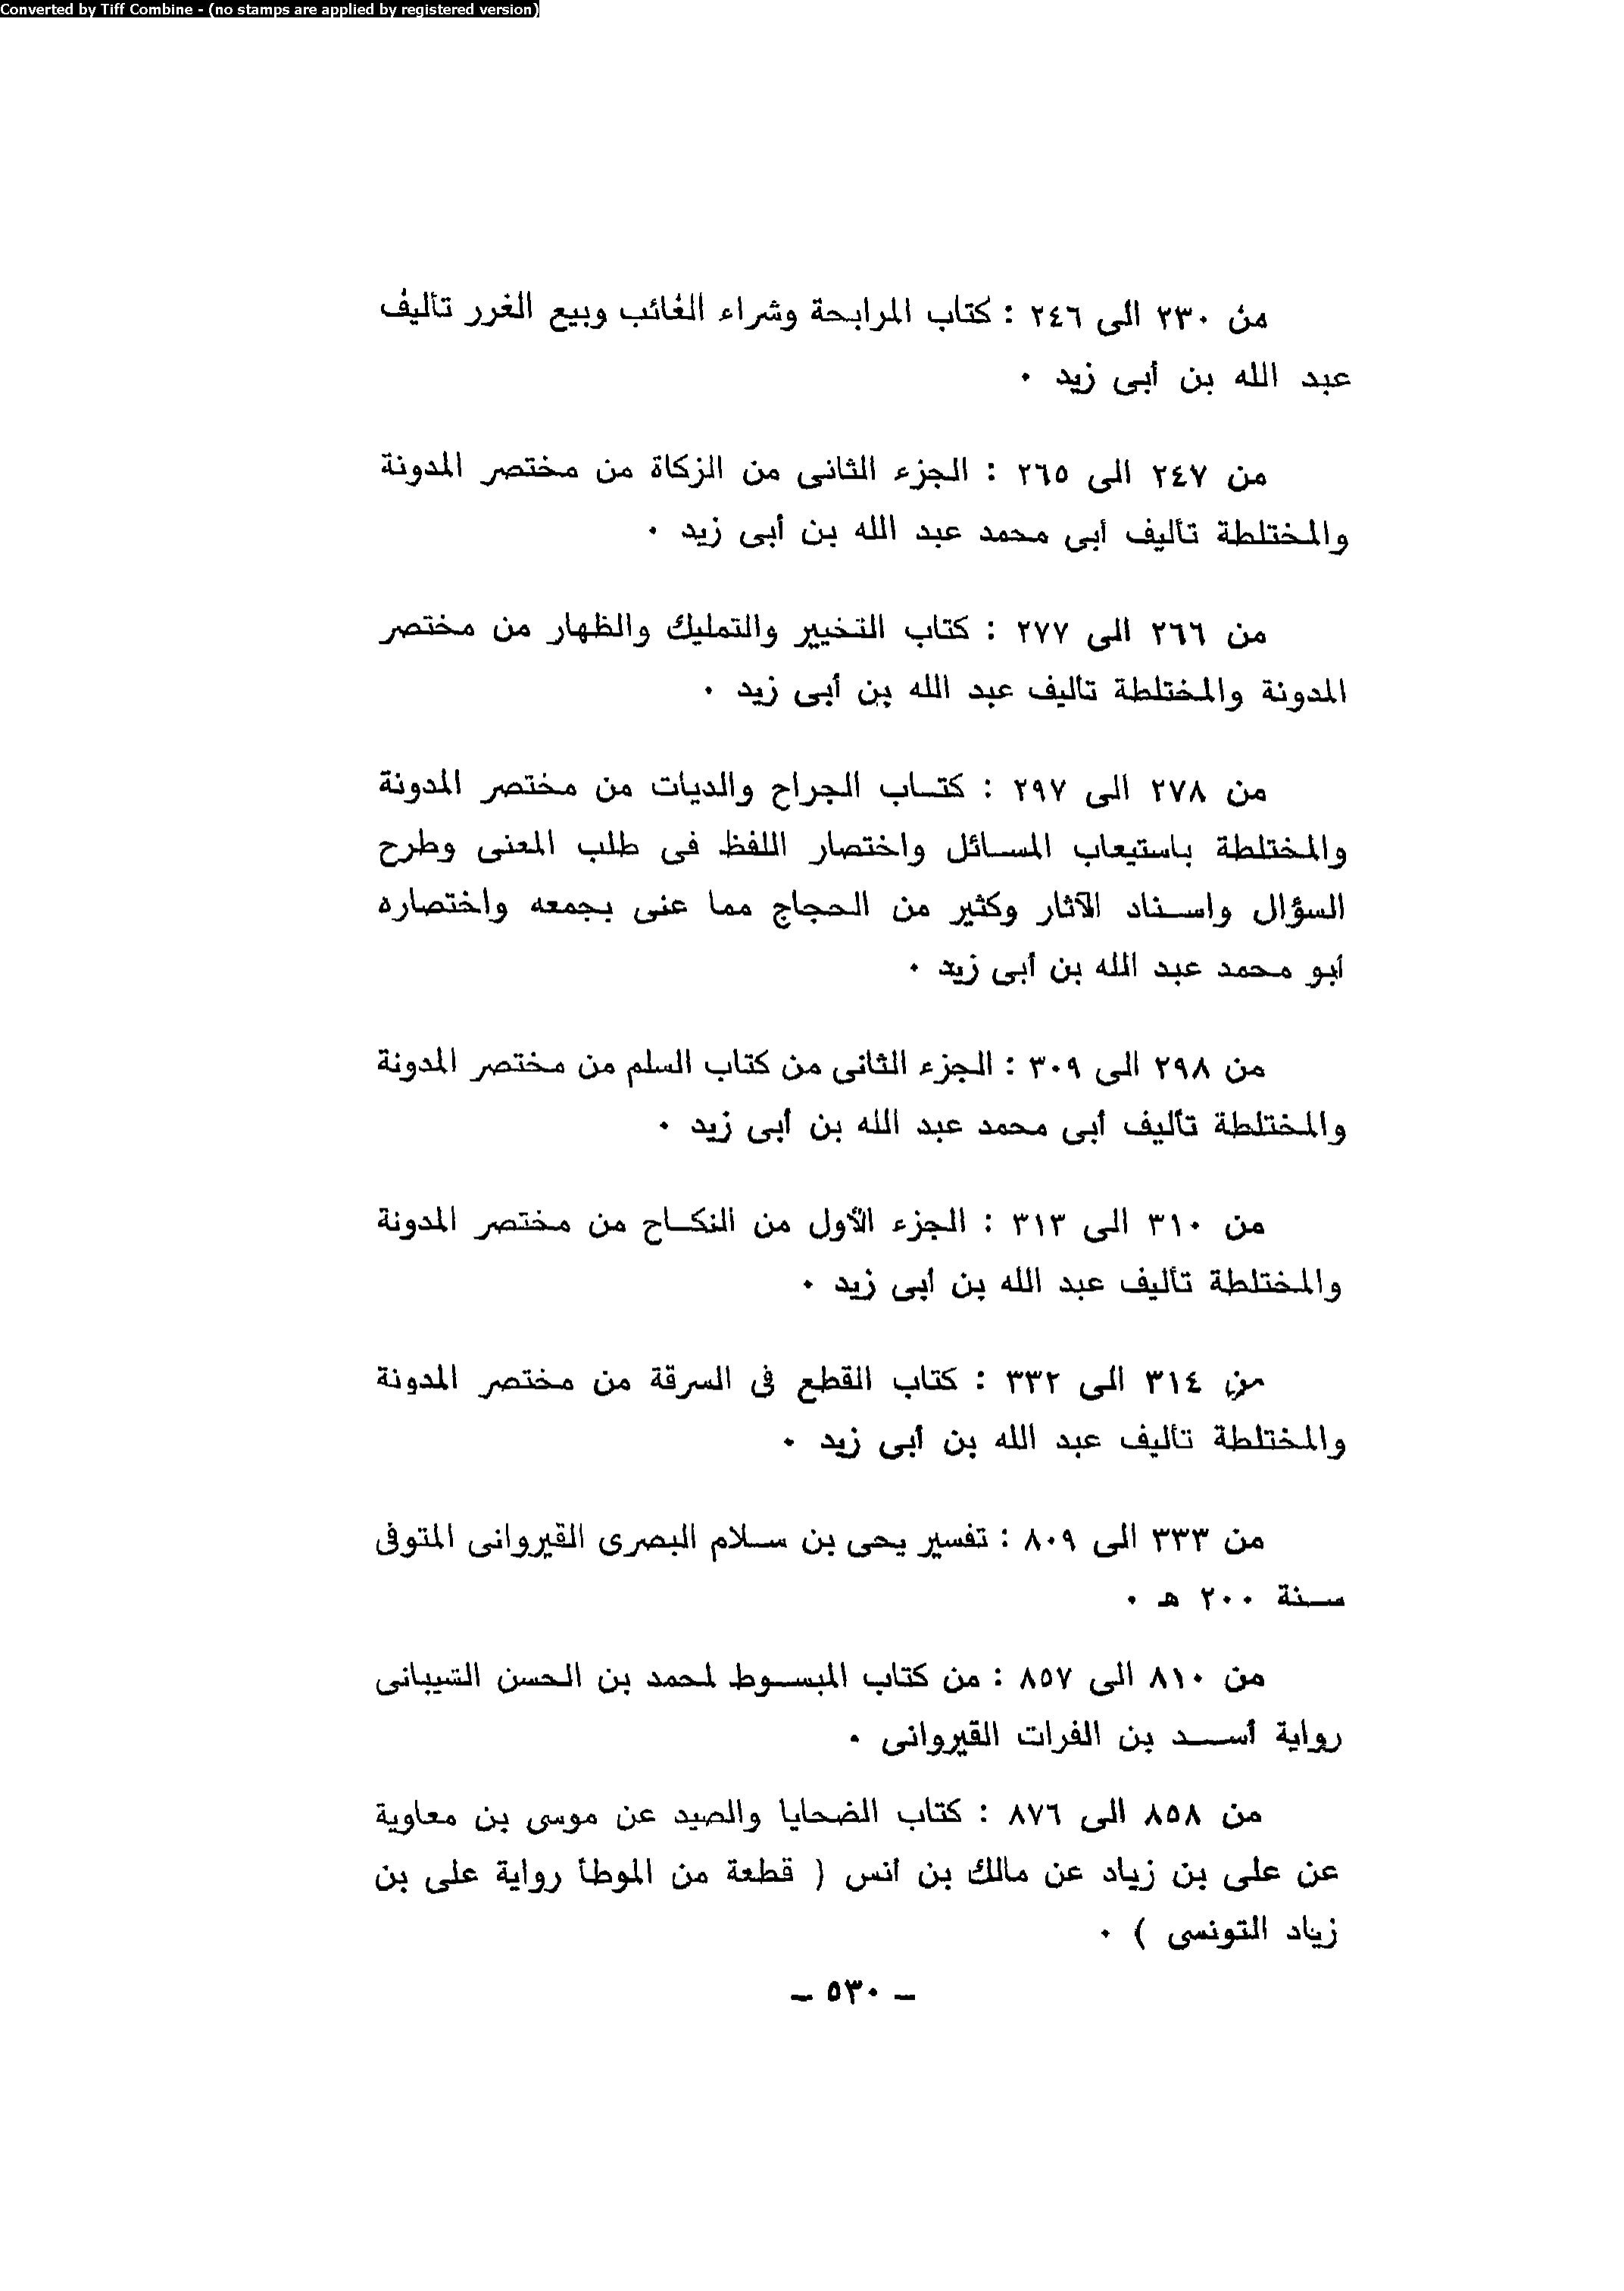 Converted by Tiff Combine - (no stamps are applied by registered version)
من ٢٣٠ الى ٢٤٦ : كتاب المرابحة وشراء الغائب وبيع الغرر تأليف
عبد الله بن أبى زيد ٠
من ٢٤٧ الى ٢٦٥ : الجزء الثانى من الزكاة من مختصر المدونة
والمختلطة تأليف أبى محمد عبد الله بن أبى زيد ٠
من ٢٦٦ الى ٢٧٧ : كتاب التخيير والتمليك والظهار من مختصر
المدونة والمختلطة تاليف عبد الله بن أبى زيد ٠
من ٢٧٨ الى ٢٩٧ : كتـاب الجراح والديات من مختصر المدونة
والمختلطة باستيعاب المسـائل واختصار اللفظ فى طلب المعنى وطرح
السؤال واسـناد الآثار وكثير من الحجاج مما عنى بجمعه واختصاره
أبو محمد عبد الله بن أبى زيد ٠
من ٢٩٨ الى ٣٠٩ : الجزء الثانى من كتاب السلم من مختصر المدونة
والمختلطة تأليف أبى محمد عبد الله بن أبى زيد ٠
من ٣١٠ الى ٣١٣ : الجزء الأول من النكـاح من مختصر المدونة
والمختلطة تأليف عبد الله بن أبى زيد ٠
من ٣١٤ الى ٣٣٢ : كتاب القطع فى السرقة من مختصر المدونة
والمختلطة تأليف عبد الله بن أبى زيد ٠
من ٣٣٣ الى ٨٠٩ : تفسير يحى بن سـلام البصرى القيروانى المتوفى
سـنة ٢٠٠ هـ ٠
من ٨١٠ الى ٨٥٧ : من كتاب المبسـوط لمحمد بن الحسن الشيبانى
رواية أسـد بن الفرات القيروانى ٠
من ٨٥٨ الى ٨٧٦ : كتاب الضحايا والصيد عن موسى بن معاوية
عن على بن زياد عن مالك بن أنس ( قطعة من الموطأ رواية على بن
زياد التونسى ) ٠
– ٥٣٠ –